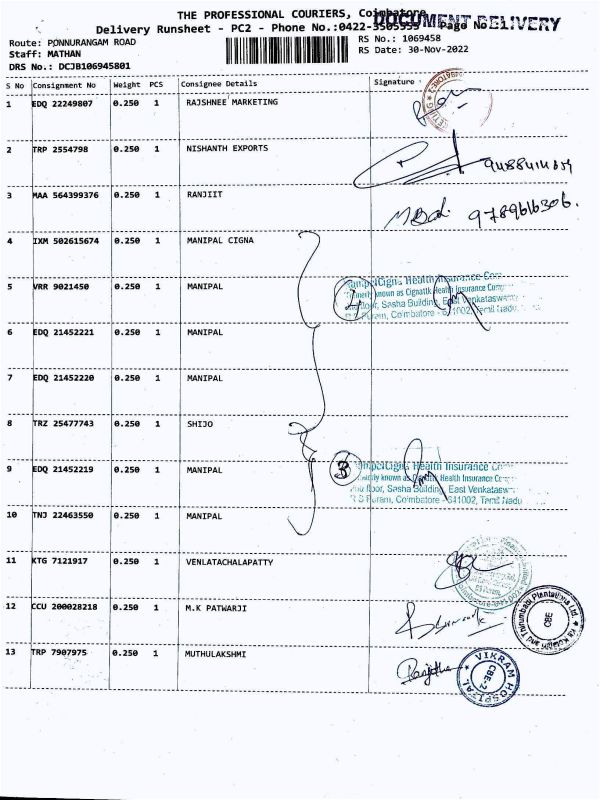 THE PROFESSIONAL COURIERS, Coimbatore
DOCUMENT DELIVERY
Delivery Runsheet - PC2 - Phone No.:0422- Page No.:1
Route: PONNURANGAM ROAD
RS No.: 1069458
Staff: MATHAN
RS Date: 30-Nov-2022
DRS No.: DCJB106945801
S No Consignment No Weight PCS Consignee Details Signature
1 EDQ 22249807 0.250 1 RAJSHNEE MARKETING
2 TRP 2554798 0.250 1 NISHANTH EXPORTS
3 MAA 564399376 0.250 1 RANJIIT
9789616306.
4 IXM 502615674 0.250 1 MANIPAL CIGNA
5 VRR 9021450 0.250 1 MANIPAL
Health Insurance
known as Cignattk Health Insurance
floor, Sasha Building, East
Puram, Coimbatore - 641002, Tamil Nadu
6 EDQ 21452221 0.250 1 MANIPAL
7 EDQ 21452220 0.250 1 MANIPAL
8 TRZ 25477743 0.250 1 SHIJO
9 EDQ 21452219 0.250 1 MANIPAL
3
Health Insurance
known as Health Insurance
floor, Sasha Building, East
Puram, Coimbatore - 641002, Tamil Nadu
10 TNJ 22463550 0.250 1 MANIPAL
11 KTG 7121917 0.250 1 VENLATACHALAPATTY
12 CCU 200028218 0.250 1 M.K PATWARJI
Plantations Ltd
CBE
13 TRP 7907975 0.250 1 MUTHULAKSHMI
Ranjitha
VIKRAM HOSPITAL
CBE-2